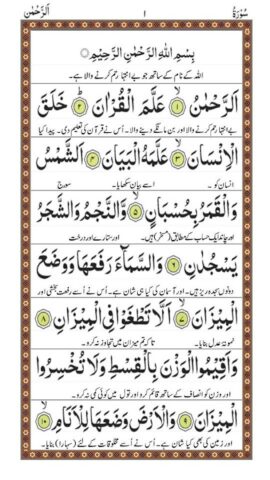 سُوْرَةُ ١ اَلرَّحْمٰن
بِسْمِ اللّٰهِ الرَّحْمٰنِ الرَّحِيْمِ
اللہ کے نام کے ساتھ جو بے انتہا رحم کرنے والا ہے۔
اَلرَّحْمٰنُ ۙ﴿١﴾ عَلَّمَ الْقُرْاٰنَ ؕ﴿٢﴾ خَلَقَ
بے انتہا رحم کرنے والا اور بن مانگے دینے والا۔ اُس نے قرآن کی تعلیم دی۔ پیدا کیا
الْاِنْسَانَ ۙ﴿٣﴾ عَلَّمَهُ الْبَيَانَ ﴿٤﴾ اَلشَّمْسُ
انسان کو۔ اسے بیان سکھایا۔ سورج
وَالْقَمَرُ بِحُسْبَانٍ ۪﴿٥﴾ وَّالنَّجْمُ وَالشَّجَرُ
اور چاند ایک حساب کے مطابق (مسخر) ہیں۔ اور ستارے اور درخت
يَسْجُدٰنِ ﴿٦﴾ وَالسَّمَآءَ رَفَعَهَا وَوَضَعَ
دونوں سجدہ ریز ہیں۔ اور آسمان کی کیا ہی شان ہے۔ اُس نے اُسے رفعت بخشی اور
الْمِيْزَانَ ۙ﴿٧﴾ اَلَّا تَطْغَوْا فِي الْمِيْزَانِ ﴿٨﴾
نمونۂ عدل بنایا۔ تاکہ تم میزان میں تجاوز نہ کرو۔
وَاَقِيْمُوا الْوَزْنَ بِالْقِسْطِ وَلَا تُخْسِرُوا
اور وزن کو انصاف کے ساتھ قائم کرو اور تول میں کوئی کمی نہ کرو۔
الْمِيْزَانَ ﴿٩﴾ وَالْاَرْضَ وَضَعَهَا لِلْاَنَامِ ۙ﴿١٠﴾
اور زمین کی بھی کیا شان ہے۔ اُس نے اُسے مخلوقات کے لئے (سہارا) بنایا۔